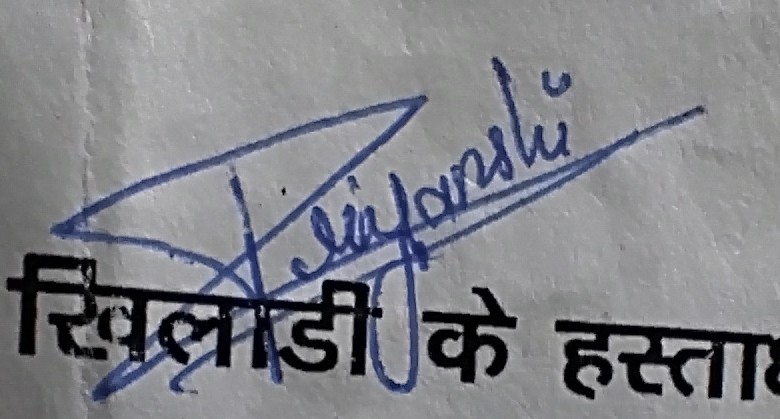 Priyanshi
खिलाडी के